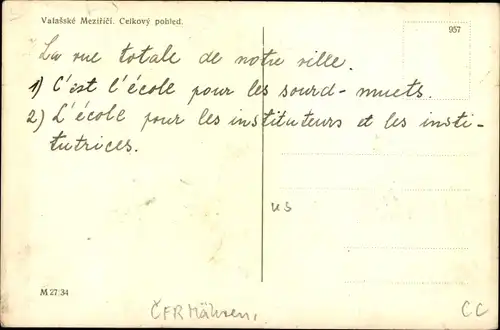 Valašské Meziříčí. Celkový pohled.
957
La vue totale de notre ville.
1) C'est l'école pour les sourd-muets.
2) L'école pour les instituteurs et les insti-
tutrices.
us
M 27/34
ČFR Mähren,
CC